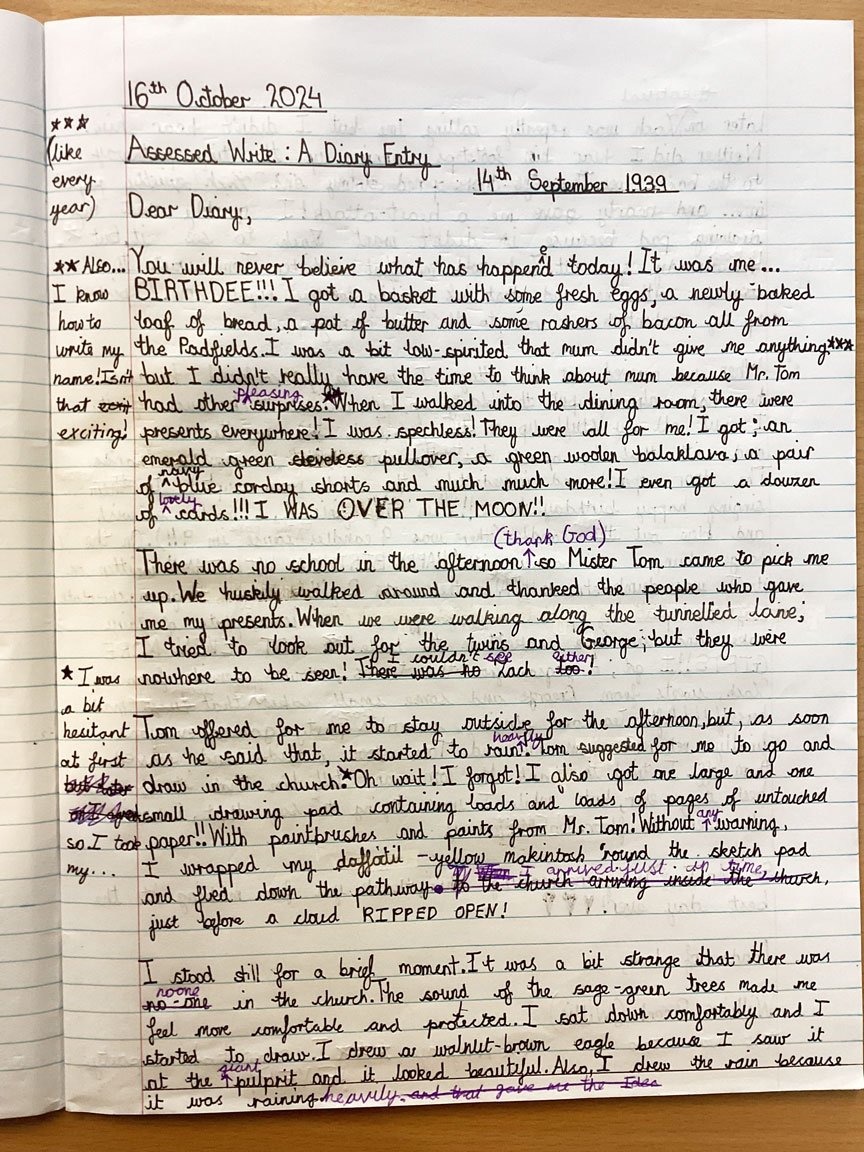 16th October 2024
Assessed Write : A Diary Entry
14th September 1939
Dear Diary,
You will never believe what has happend e today! It was me...
BIRTHDEE!!! I got a basket with some fresh eggs, a newly-baked
loaf of bread, a pat of butter and some rashers of bacon all from
the Padfields. I was a bit low-spirited that mum didn't give me anything***
but I didn't really have the time to think about mum because Mr. Tom
had other pleasing surprises.** When I walked into the dining room, there were
presents everywhere! I was spechless! They were all for me! I got ; an
emerald green sleveless pullover, a green woolen balaklava, a pair
of navy blue corday shorts and much much more! I even got a douzen
of lovely cards!!! I WAS OVER THE MOON!!
There was no school in the afternoon (thank God) so Mister Tom came to pick me
up. We huskily walked around and thanked the people who gave
me my presents. When we were walking along the tunnelled lane;
I tried to look out for the twins and George; but they were
nowhere to be seen! There was no I couldn't see Zach too either!
Tom offered for me to stay outside for the afternoon, but, as soon
as he said that, it started to rain heavily. Tom suggested for me to go and
draw in the church.* Oh wait! I forgot! I also got one large and one
small drawing pad containing loads and loads of pages of untouched
paper!! With paintbrushes and paints from Mr. Tom! Without any warning,
I wrapped my daffatil-yellow makintosh 'round the sketch pad
and fled down the pathway. I arrived just in time, to the church arriving inside the church,
just before a cloud RIPPED OPEN!
I stood still for a brief moment. It was a bit strange that there was
no-one noone in the church. The sound of the sage-green trees made me
feel more comfortable and protected. I sat down comfortably and I
started to draw. I drew a walnut-brown eagle because I saw it
at the giant pulprit and it looked beautiful. Also, I drew the rain because
it was raining heavily. and that gave me the Idea
***
(like
every
year)
** Also...
I know
how to
write my
name! Isn't
that
exciting!
* I was
a bit
hesitant
at first
so I took
my...